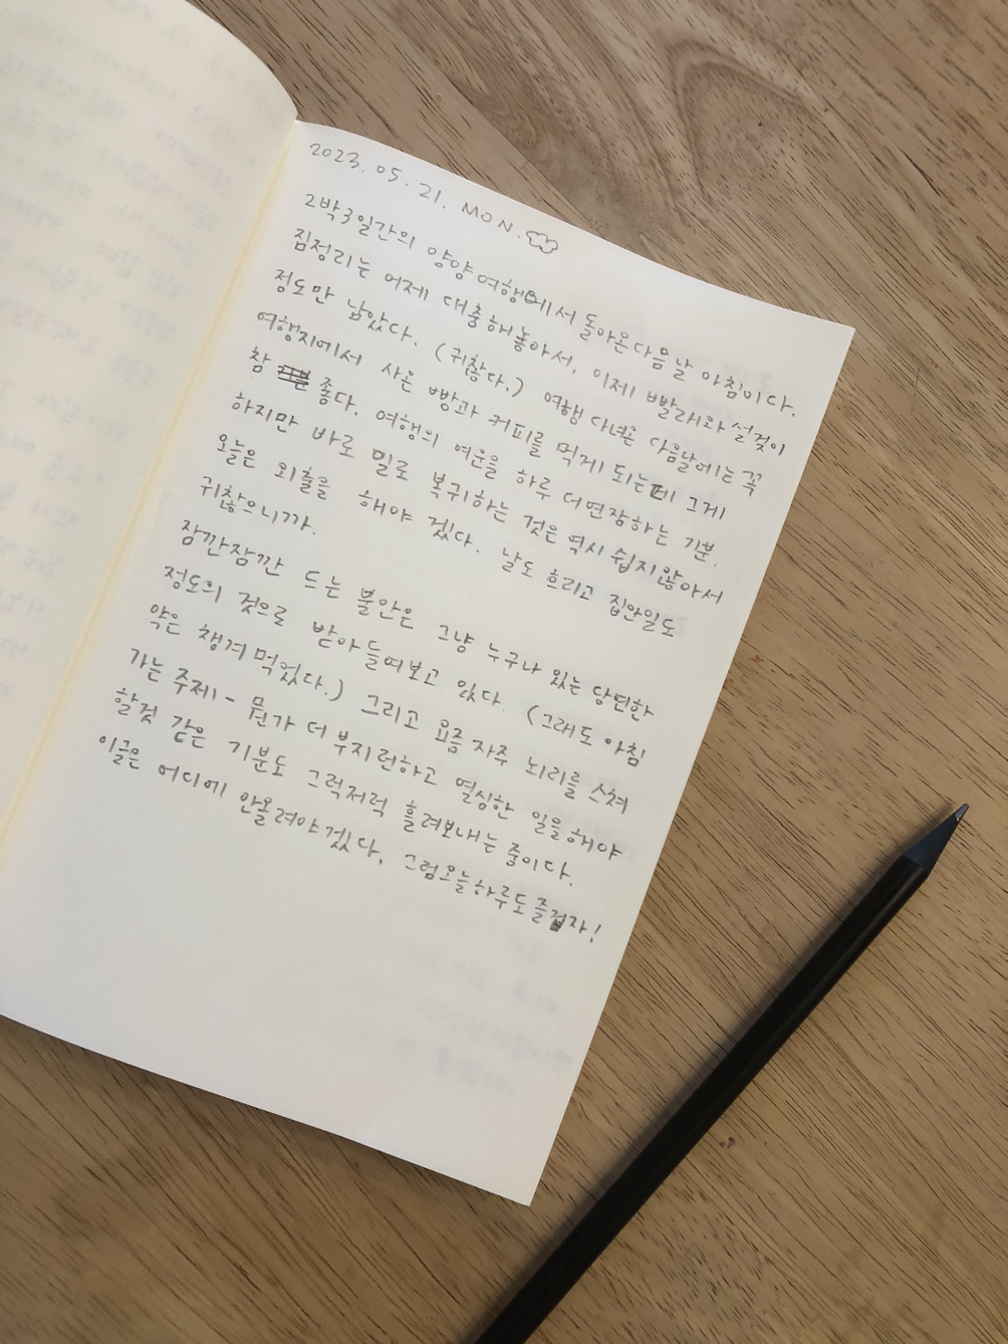 2023. 05. 21. MON.
2박3일간의 양양여행에서 돌아온 다음날 아침이다.
짐정리는 어제 대충해놓아서, 이제 빨래와 설겆이
정도만 남았다. (귀찮다.) 여행 다녀온 다음날에는 꼭
여행지에서 사온 빵과 커피를 먹게 되는데 그게
참 좋다. 여행의 여운을 하루 더 연장하는 기분.
하지만 바로 밀로 복귀하는 것은 역시 쉽지않아서
오늘은 외출을 해야 겠다. 날도 흐리고 집안일도
귀찮으니까.
잠깐잠깐 드는 불안은 그냥 누구나 있는 당연한
정도의 것으로 받아들여보고 있다. (그래도 아침
약은 챙겨먹었다.) 그리고 요즘 자주 뇌리를 스쳐
가는 주제- 뭔가 더 부지런하고 열심한 일을 해야
할것 같은 기분도 그럭저럭 흘려보내는 중이다.
이글은 어디에 안올려야겠다. 그럼오늘하루도즐겁자!